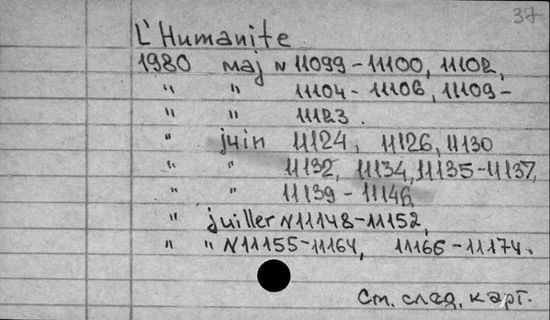 37
L'Humanite
1980 maj N 11099-11100, 11102,
" " 11104-11106, 11109-
" " 11123.
" juin 11124, 11126, 11130
" " 11132, 11134, 11135-11137,
" " 11139-11146,
" juiller N11148-11152,
" " N11155-11164, 11166-11174.
См. след. карт.